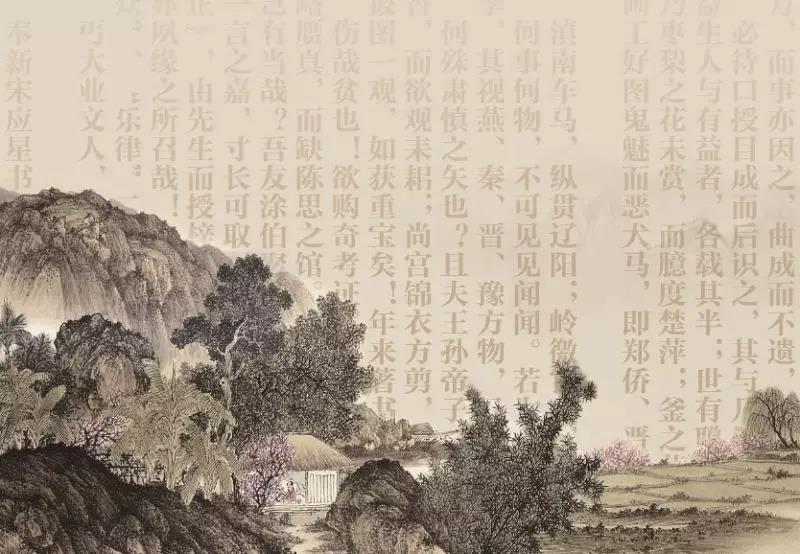 万，而事亦因之，曲成而不遗，
必待口授目成而后识之，其与几
益生人与有益者，各载其半；世有聪
乃枣梨之花未赏，而臆度楚萍；釜之
画工好图鬼魅而恶犬马，即郑侨、晋
滇南车马，纵贯辽阳；岭徼
何事何物，不可见见闻闻。若
季，其视燕、秦、晋、豫方物，
何殊肃慎之矢也？且夫王孙帝子
香，而欲观耒耜；尚宫锦衣方剪，
披图一观，如获重宝矣！年来著书
伤哉贫也！欲购奇考证
略赝真，而缺陈思之馆。
己有当哉？吾友涂伯
一言之嘉，寸长可取
正》，由先生而授
亦夙缘之所召哉！
乐律
丐大业文人，
奉新宋应星书